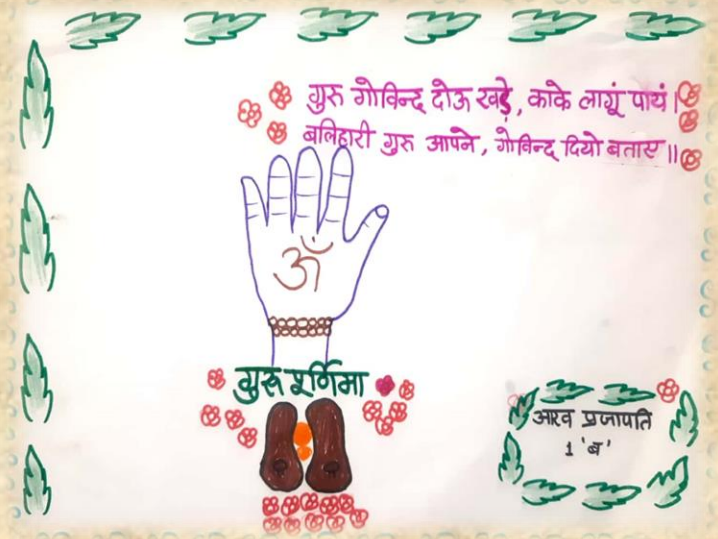 गुरु गोविन्द दोऊ खड़े, काके लागूं पायं।
बलिहारी गुरु आपने, गोविन्द दियो बताए॥
ॐ
गुरू पूर्णिमा
आरव प्रजापति
1 'ब'